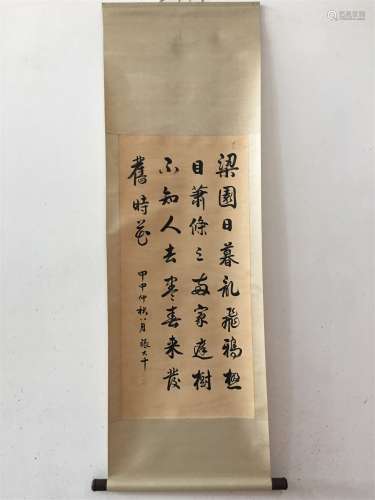 梁園日暮乱飛鴉極
目蕭條三兩家庭樹
不知人去尽春来發
舊時花
甲申仲秋八月張大千